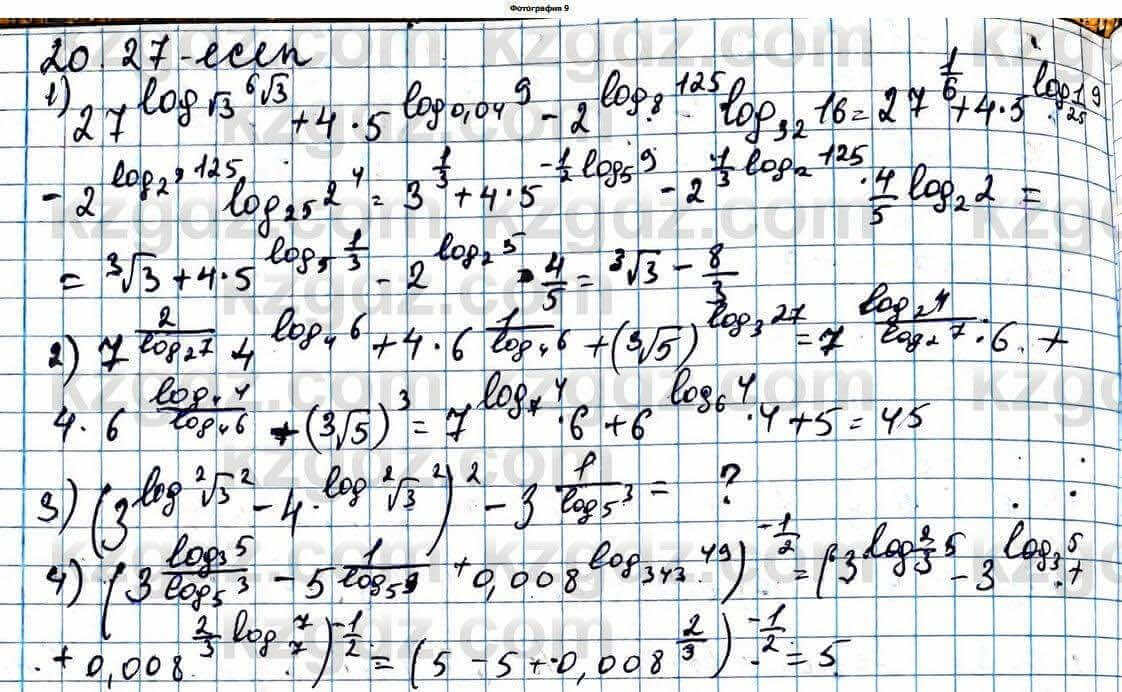 Фотография 9
20.27-есеп
1) 27^{log_{√3} ⁶√3} + 4·5^{log_{0,04} 9} - 2^{log_8 125} log_{32} 16 = 27^{1/6} + 4·5^{log_{1/25} 9}
- 2^{log_{2^3} 125} log_{25} 2^4 = 3^{1/3} + 4·5^{-1/2 log_5 9} - 2^{1/3 log_2 125} · 4/5 log_2 2 =
= ³√3 + 4·5^{log_5 1/3} - 2^{log_2 5} · 4/5 = ³√3 - 8/3
2) 7^{2/log_2 7} · 4^{log_4 6} + 4·6^{1/log_4 6} + (³√5)^{log_3 27} = 7^{log_2 4/log_2 7} · 6 +
4·6^{log_4 4/log_4 6} + (³√5)^3 = 7^{log_7 4} · 6 + 6^{log_6 4} · 4 + 5 = 45
3) (3^{log ²√3 2} - 4·^{log ²√3 2})^2 - 3^{1/log_5 3} = ?
4) (3^{log_3 5/log_5 3} - 5^{1/log_5 9} + 0,008^{log_{343} 49})^{-1/2} = (3^{log_{2/3} 5} - 3^{log_3 5} +
+ 0,008^{2/3 log_7 7})^{-1/2} = (5 - 5 + 0,008^{2/3})^{-1/2} = 5
kzgdz.com